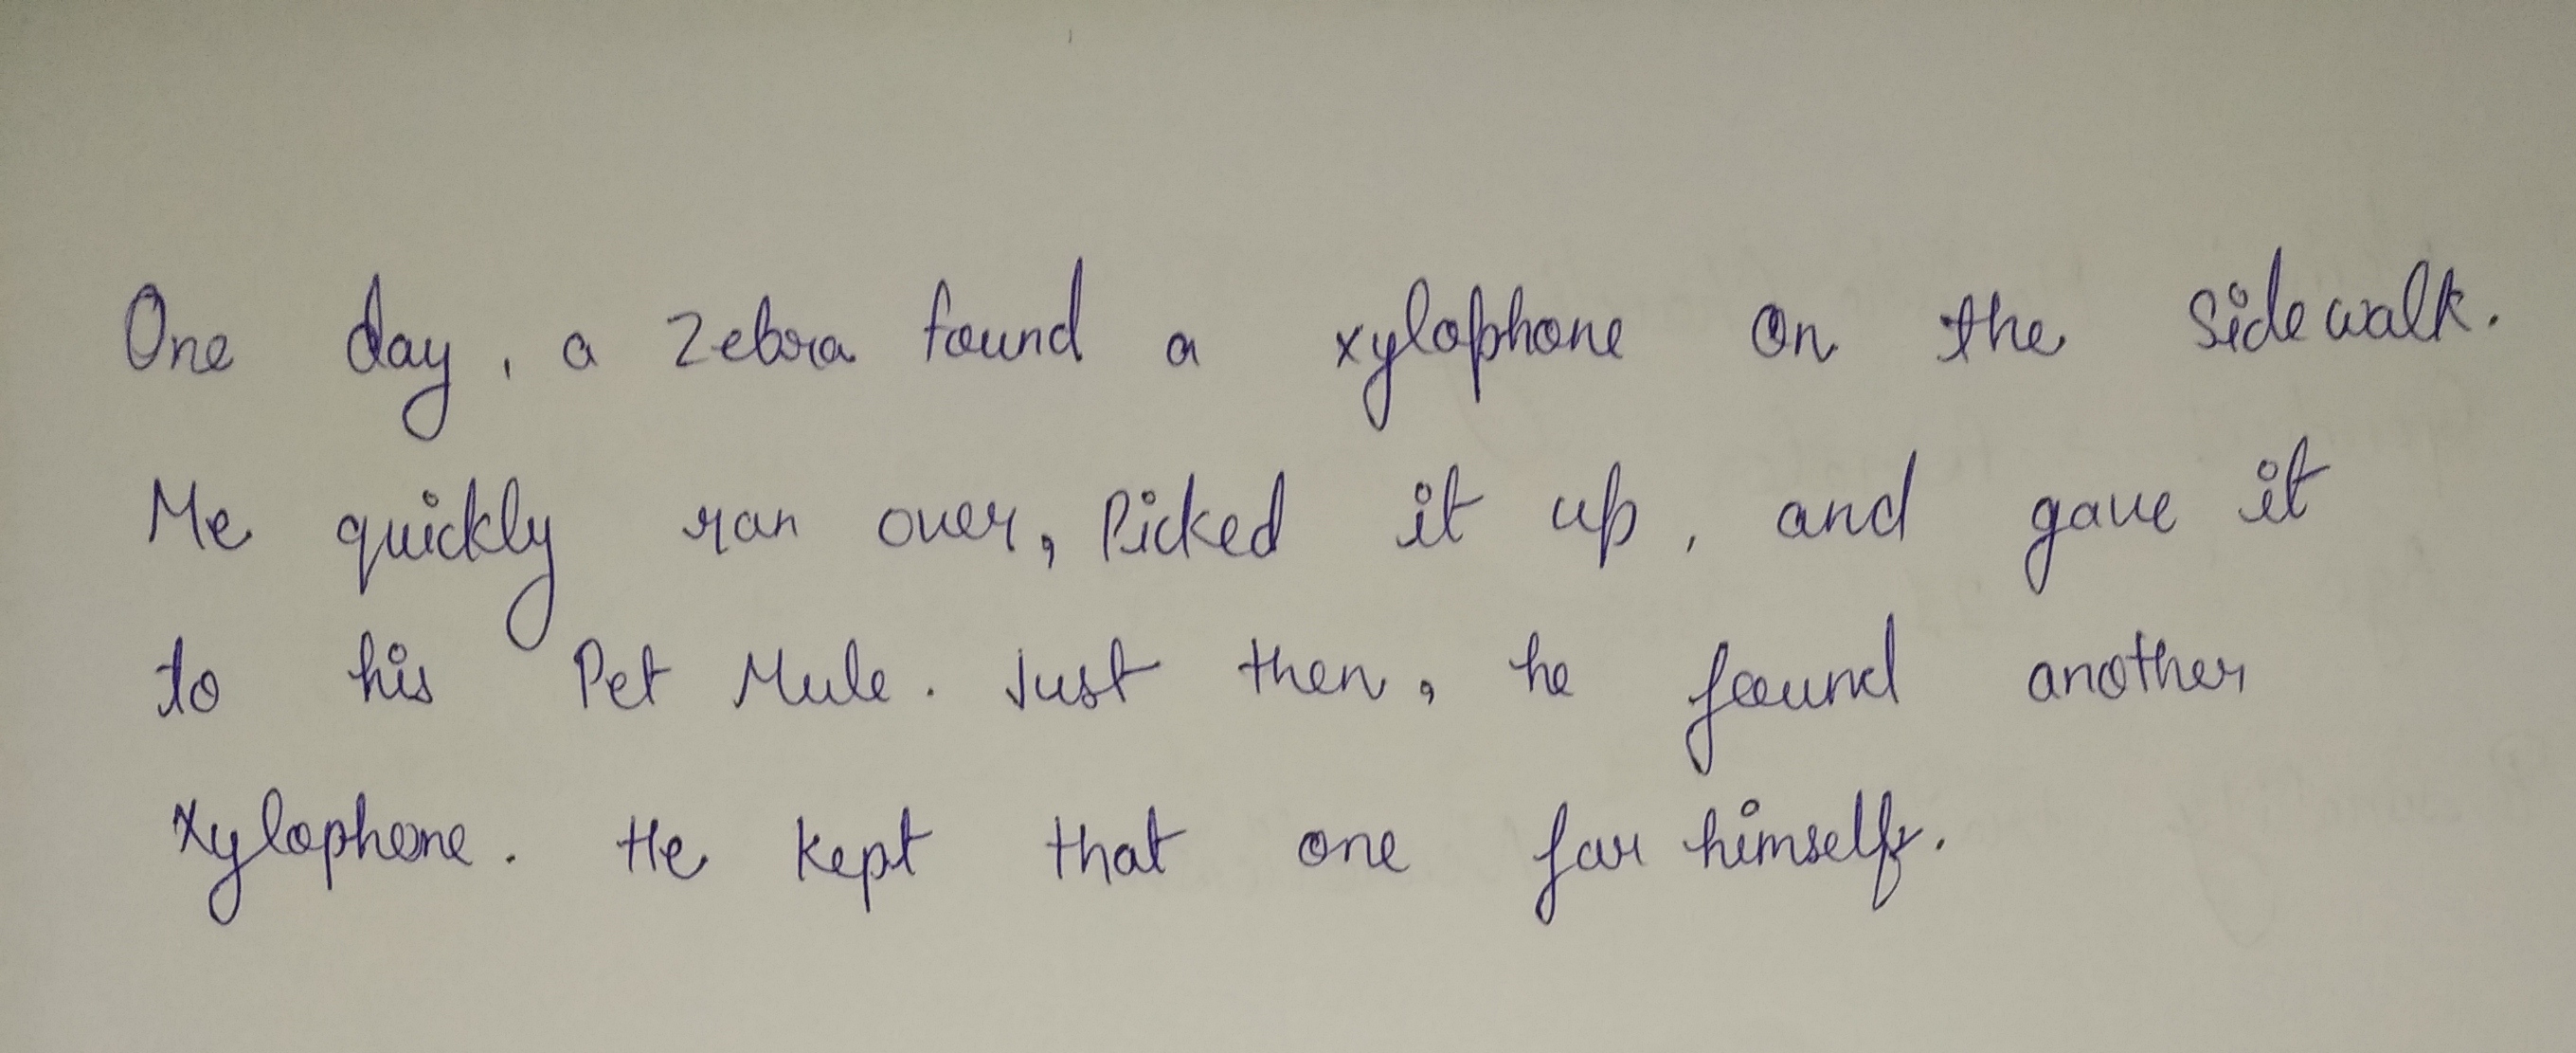 One day, a Zebra found a xylophone on the Sidewalk.
Me quickly ran over, Picked it up, and gave it
to his Pet Mule. Just then, he found another
Xylophone. He kept that one for himself.